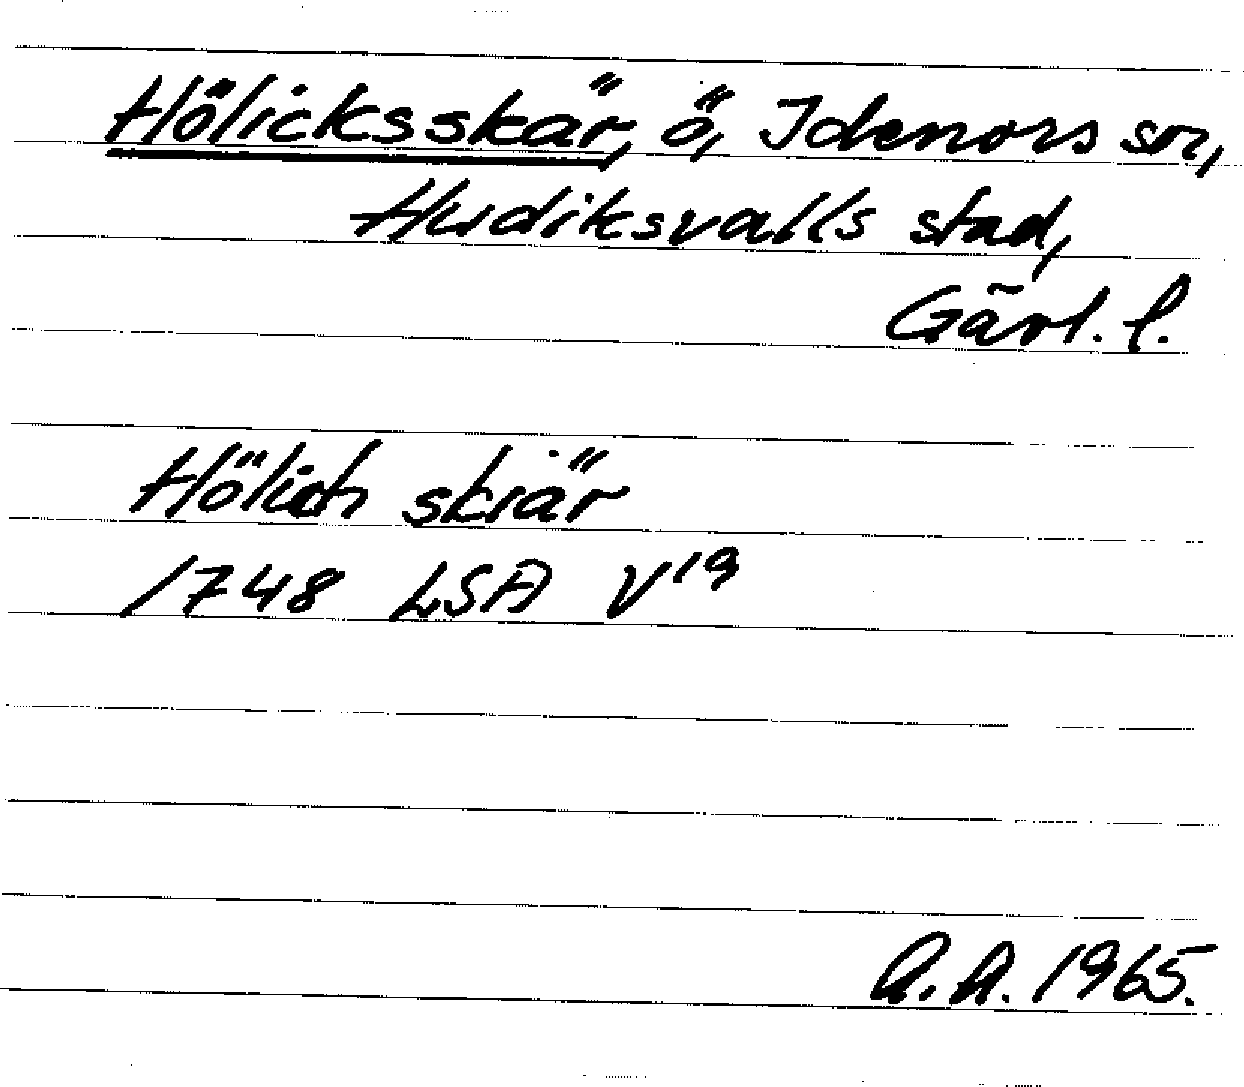 Hölicksskär, ö, Idenors sn,
Hudiksvalls stad,
Gävl. l.
Hölich skiär
1748 LSA V¹⁹
A.A. 1965.